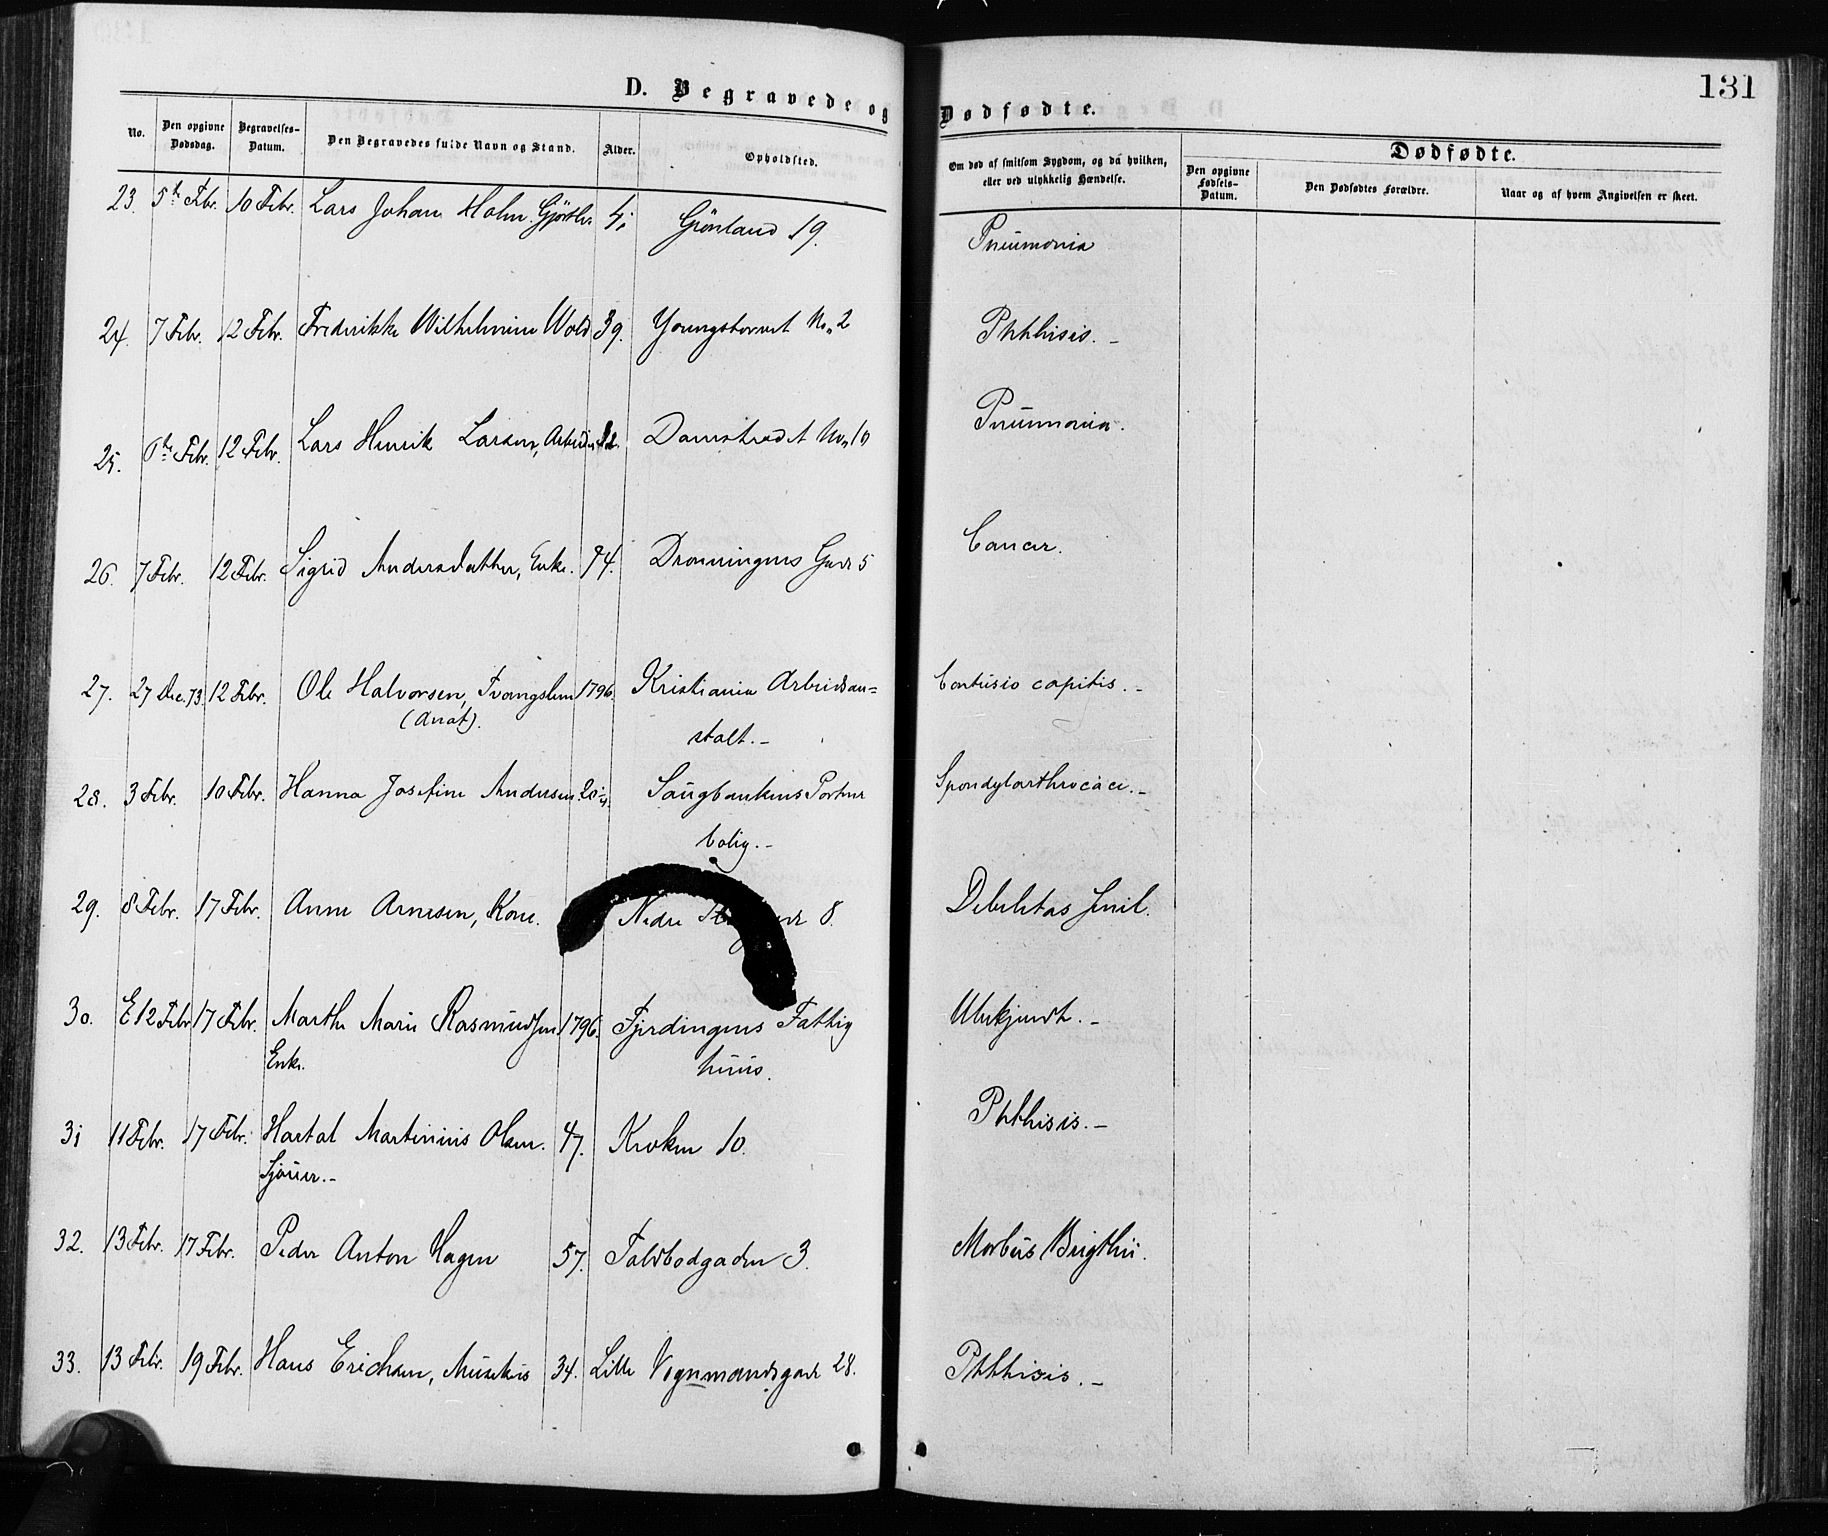 131
D. Begravede og Dødfødte.
No.
Den opgivne Dødsdag.
Begravelses-Datum.
Den Begravedes fulde Navn og Stand.
Alder.
Opholdsted.
Om død af smitsom Sygdom, og da hvilken, eller ved ulykkelig Hændelse.
Dødfødte.
Den opgivne Fødsels-Datum.
Den Dødfødtes Forældre.
Naar og af hvem Angivelsen er skeet.
23. 5te Febr. 10 Febr. Lars Johan Holm. Grønland 19. Pneumonia
24. 7 Febr. 12 Febr. Frederikke Wilhelmine Wold 39. Youngstorvet No. 2 Phthisis. -
25. 6te Febr. 12 Febr. Lars Henrik Larsen, Arbeider Damstrædet No. 10 Pneumonia.
26. 7 Febr. 12 Febr. Sigrid Andersdatter, Enke. 74. Dronningens Gade 5 Cancer.
27. 27 Dec. 73. 12 Febr. Ole Halvorsen, Tvangslem 1796. Kristiania Arbeidsan= Contusio capitis. -
(Anat). stalt. -
28. 3 Febr. 10 Febr. Hanna Josefine Andersen. Saugbankens Portner Spondylarthrocace. -
bolig. -
29. 8 Febr. 17 Febr. Anne Arnesen, Kone. Nedre 8. Debilitas senil.
30. E 12 Febr. 17 Febr. Marthe Marie Rasmudsen 1796. Fjerdingens Fattig Ubekjendt. -
Enke. huus.
31 11 Febr. 17 Febr. Martinius Olsen. 47. Kroken 10. Phthisis. -
32. 13 Febr. 17 Febr. Peder Anton Hagen 57. Toldbodgaden 3. Morbus Brigthii.
33. 13 Febr. 19 Febr. Hans Erichsen, Musikus 34. Lille Vognmandsgade 28. Phthisis. -